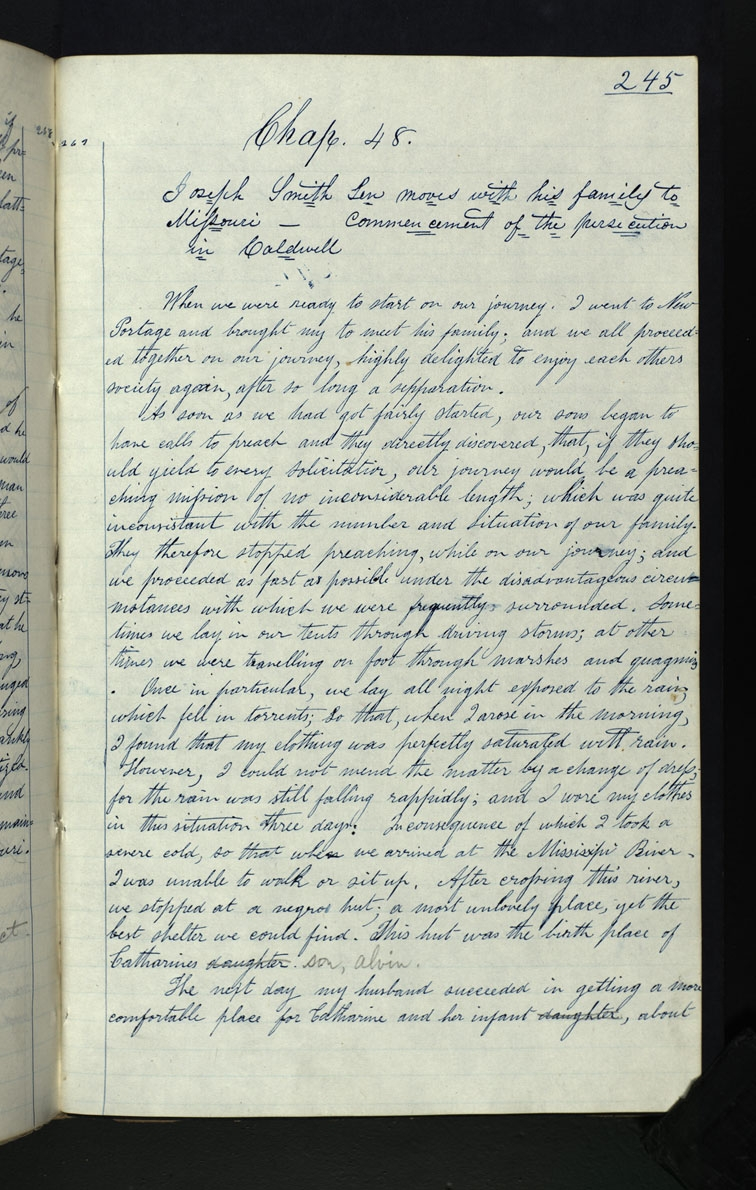 245
Chap. 48.
Joseph Smith Sen moves with his family to
Missouri — Commencement of the persecution
in Caldwell
When we were ready to start on our journey. I went to New
Portage and brought my to meet his family; and we all proceed-
ed together on our journey, highly delighted to enjoy each others
society again, after so long a sepparation.
As soon as we had got fairly started, our sons began to
have calls to preach and they directly discovered, that, if they sho-
uld yield to every solicitation, our journey would be a prea-
ching mission of no inconsiderable length; which was quite
inconsistant with the number and situation of our family.
They therefore stopped preaching, while on our journey; and
we proceeded as fast as possible under the disadvantageous circum
mstances with which we were frequently surrounded. Some-
times we lay in our tents through driving storms; at other
times we were travelling on foot through marshes and quagmires
. Once in particular, we lay all night exposed to the rain,
which fell in torrents; so that, when I arose in the morning,
I found that my clothing was perfectly saturated with rain.
However, I could not mend the matter by a change of dress,
for the rain was still falling rappidly; and I wore my clothes
in this situation three days: In consequence of which I took a
severe cold, so that when we arrived at the Mississipi River.
I was unable to walk or sit up. After crossing this river,
we stopped at a negros hut; a most unlovely place, yet the
best shelter we could find. This hut was the birth place of
Catharines daughter. son, alvin.
The next day my husband succeeded in getting a more
comfortable place for Catharine and her infant daughter, about